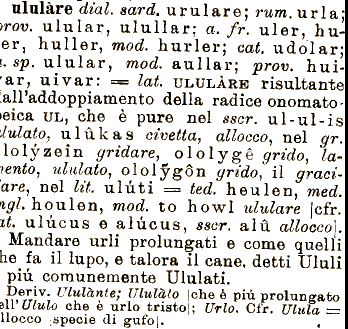 ululàre dial. sard. urulare; rum. urla;
prov. ulular, ulullar; a. fr. uler, hu-
er, huller, mod. hurler; cat. udolar;
a. sp. ulular, mod. aullar; prov. hui-
ar, uivar: = lat. ULULÀRE risultante
all'addoppiamento della radice onomato-
peica UL, che è pure nel sscr. ul-ul-is
ululato, ulûkas civetta, allocco, nel gr.
ololýzein gridare, ololygê grido, la-
mento, ululato, ololỹgôn grido, il graci-
are, nel lit. ulúti = ted. heulen, med.
ngl. houlen, mod. to howl ululare [cfr.
at. ulúcus e alúcus, sscr. alû allocco].
Mandare urli prolungati e come quelli
he fa il lupo, e talora il cane, detti Ululi
piú comunemente Ululati.
Deriv. Ululànte; Ululàto [che è piú prolungato
ell'Ululo che è urlo tristo]; Urlo. Cfr. Ulula =
llocco [specie di gufo].